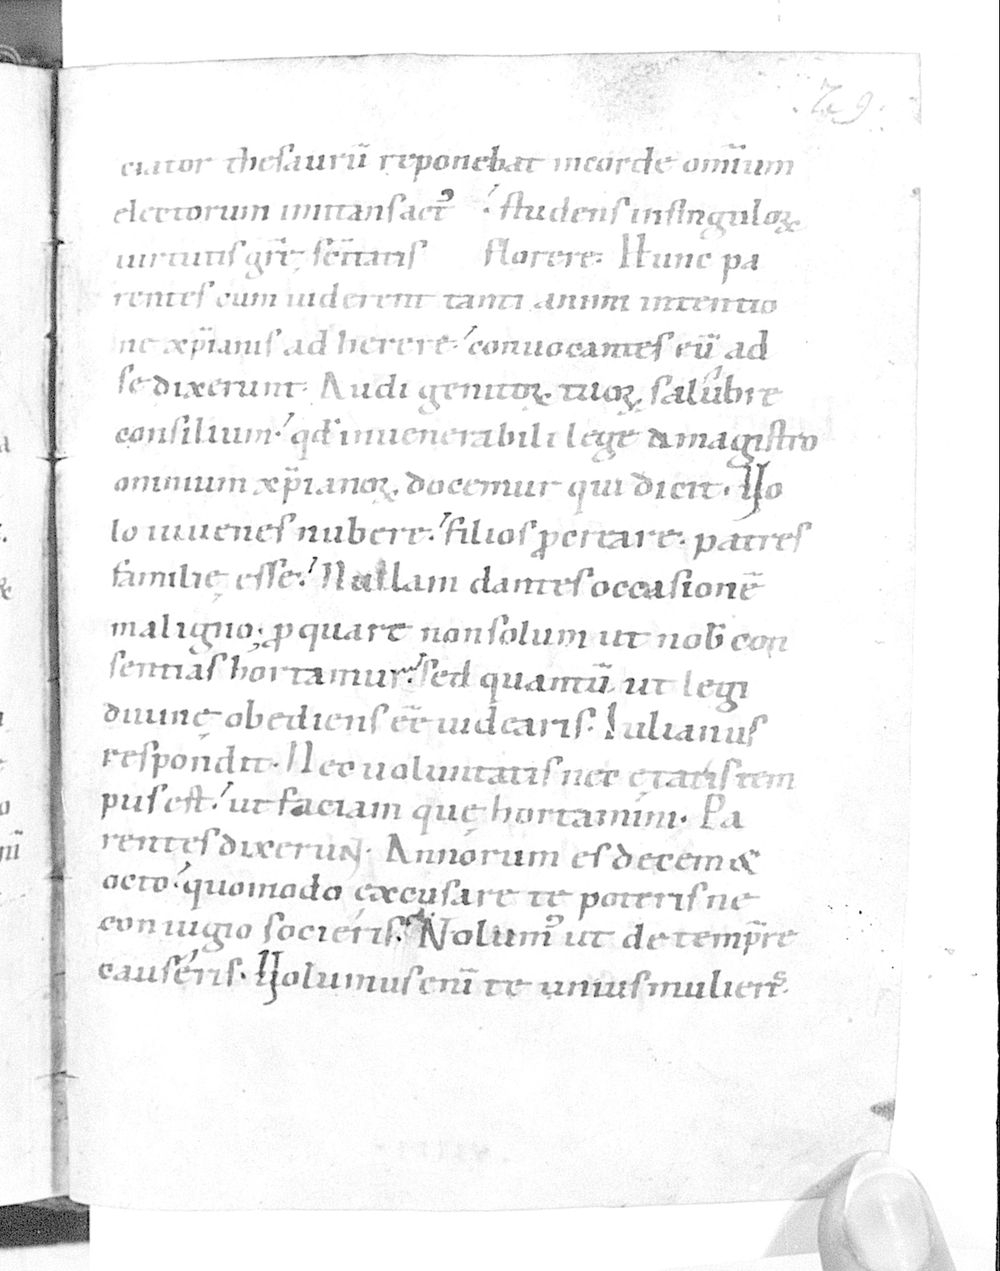 29
ciator thesaurū reponebat in corde om̄ium
electorum imitans act᷒ ·́ studens in singuloꝝ
uirtutis gr̄ę sc̄itatis florere. Hunc pa
rentes cum uiderent tanti animi intentio
ne xp̄ianis ad herere·́ conuocantes eū ad
se dixerunt. Audi genitoꝝ tuoꝝ salubre
consilium·́ qđ in uenerabili lege a magistro
omnium xp̄ianoꝝ docemur qui dicit. Uo
lo iuuenes nubere·́ filios ꝓcreare. patres
familię esse·́ Nullam dantes occasionē
maligno; ꝓ quare non solum ut nob̄ con
sentias hortamur·́ sed quantū ut legi
diuinę obediens eē uidearis. Iulianus
respondit. Nec uoluntatis nec ętatis tem
pus est·́ ut faciam quę hortamini. Pa
rentes dixerunt. Annorum es decem &
octo·́ quomodo excusare te poteris ne
coniugio socieris·́ Nolum᷒ ut de temp̄re
causeris. Uolumus enī te unius mulieris